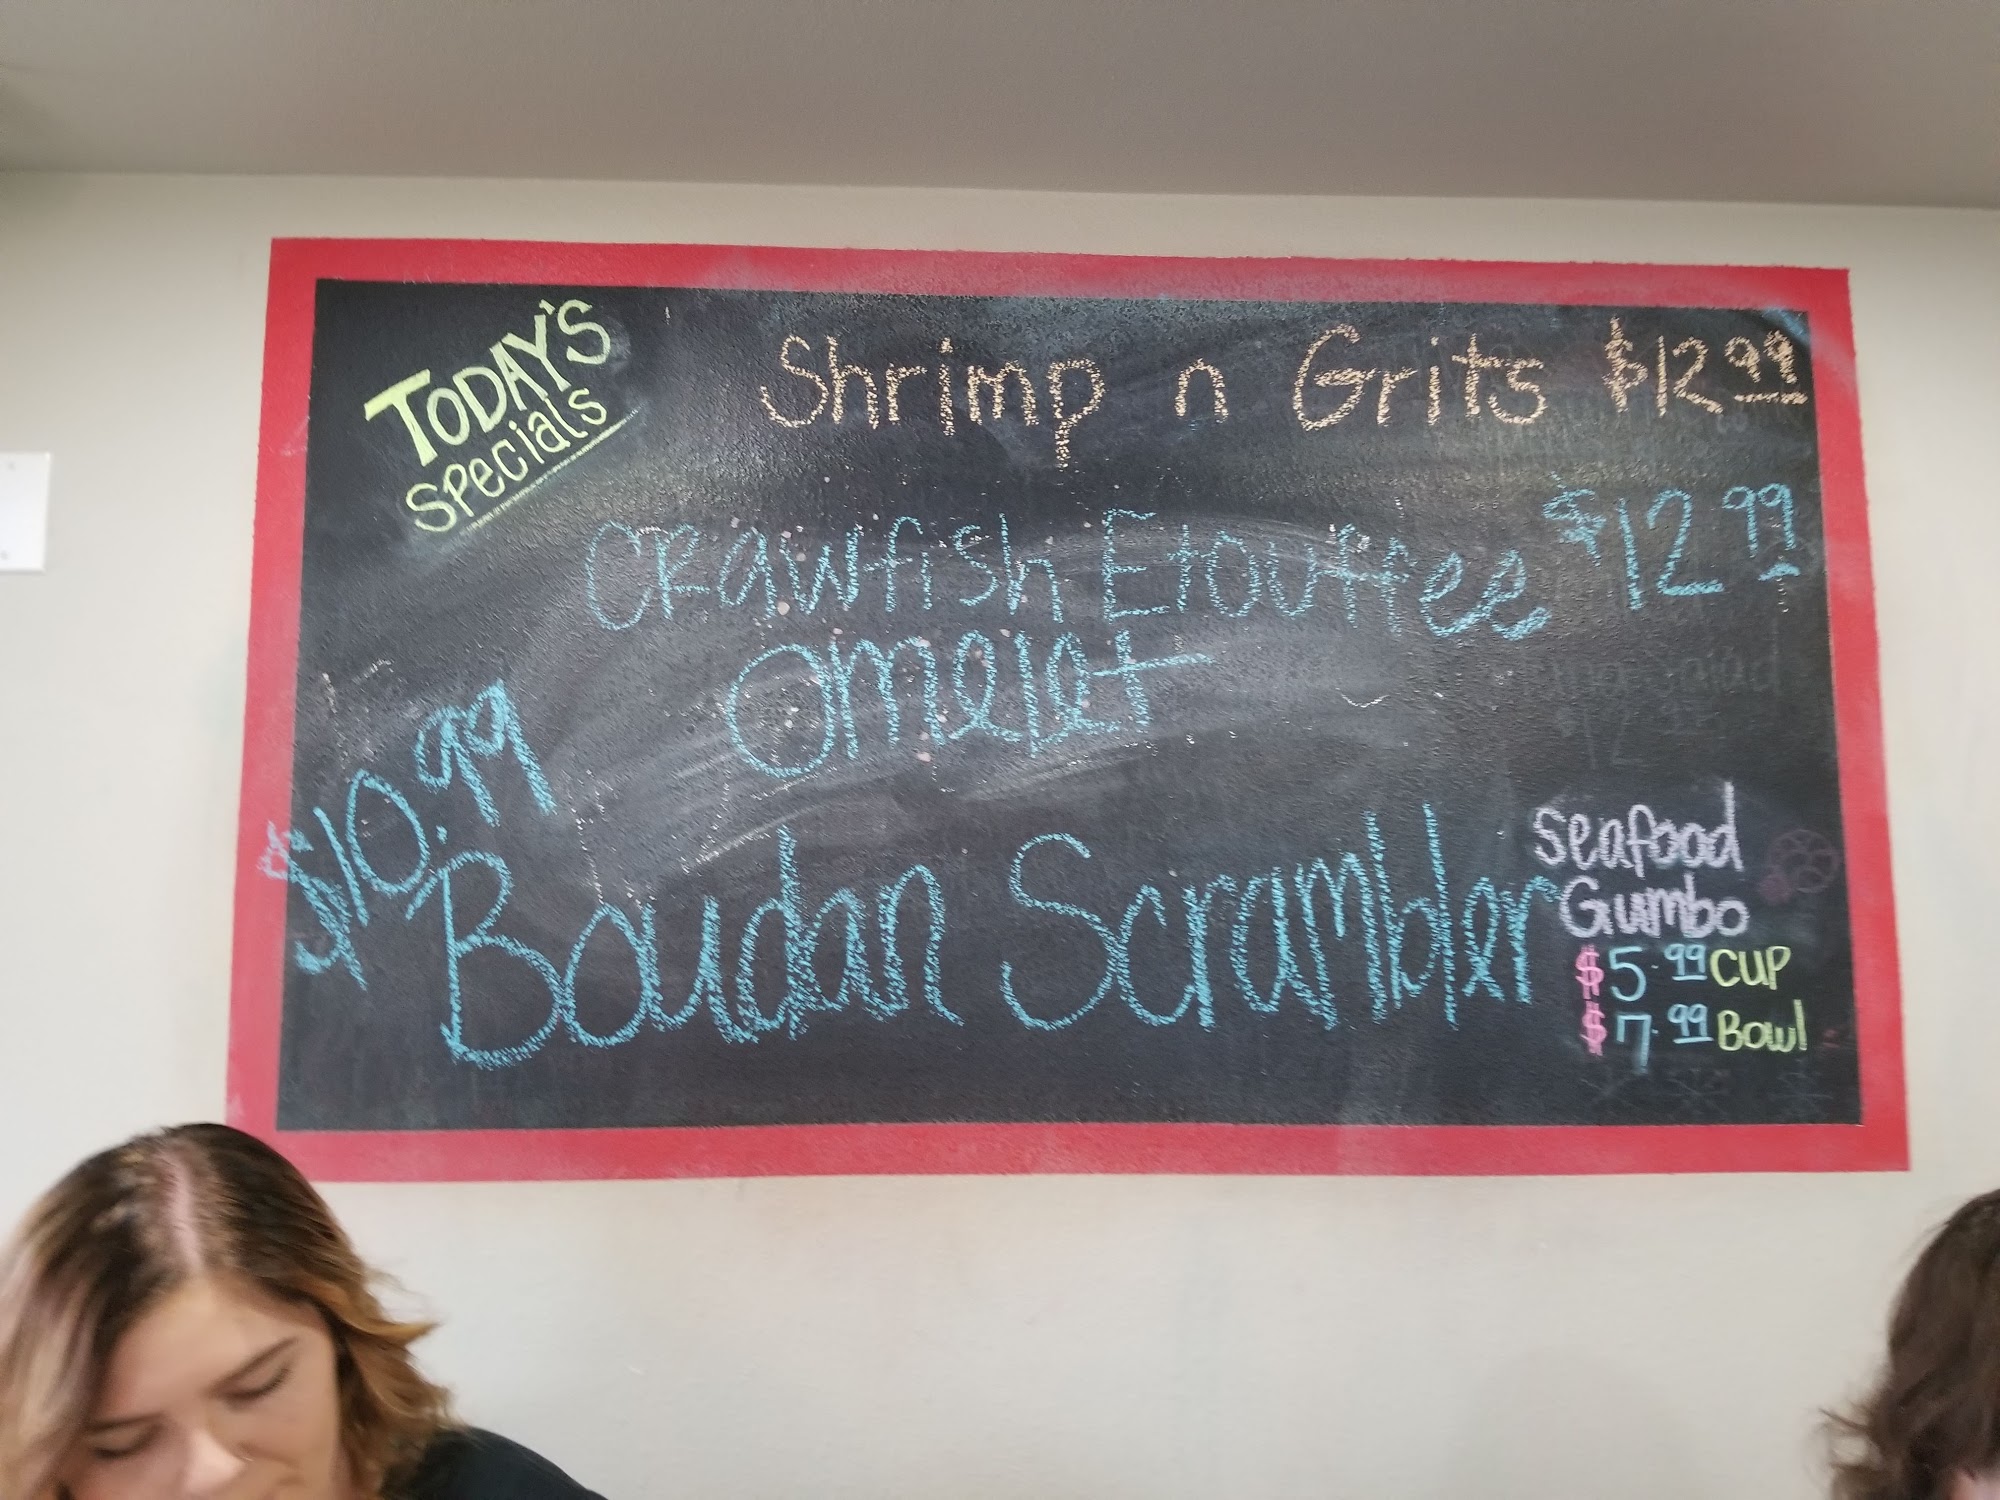 TODAY'S
specials
Shrimp n Grits $12.99
Crawfish Etouffee $12.99
omelet
$10.99
Boudan Scrambler
Seafood
Gumbo
$5.99 CUP
$7.99 Bowl